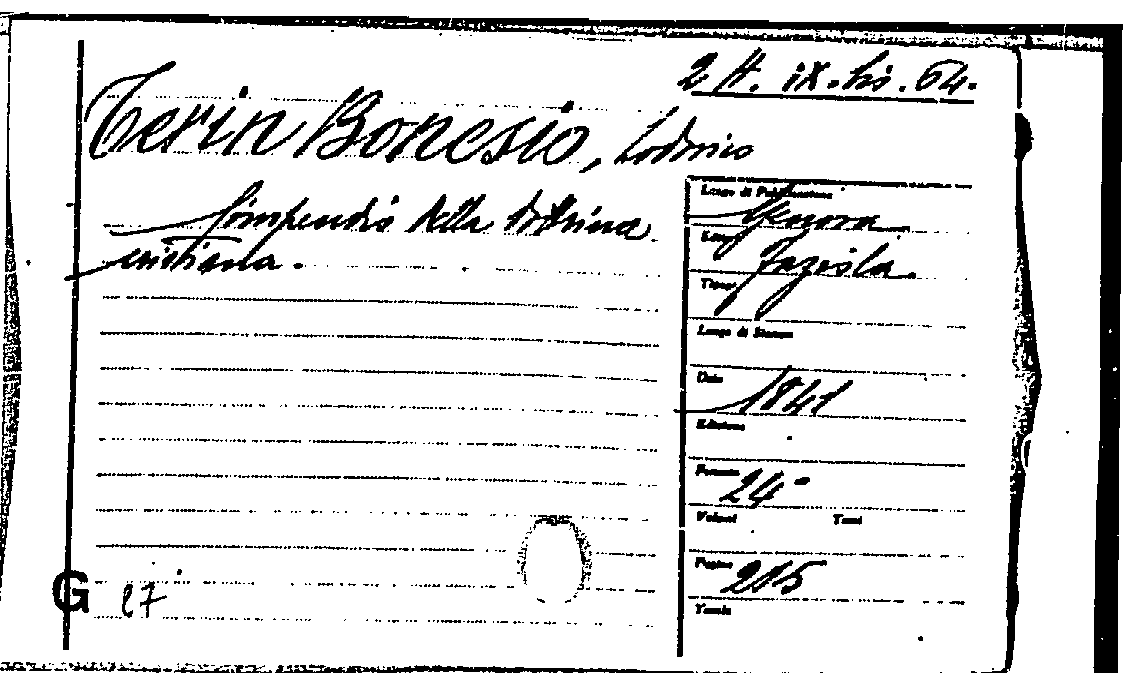 24. iX. bis. 64.
Terin Bonesio, Lodovico
Compendio della dottrina
cristiana.
Luogo di Pubblicazione
Genova
Fazzola.
Tipogr
Luogo di Stampa
Data
1841
Edizione
Formato
24°
Volumi Tomi
Pagine
215
Tavole
G 27